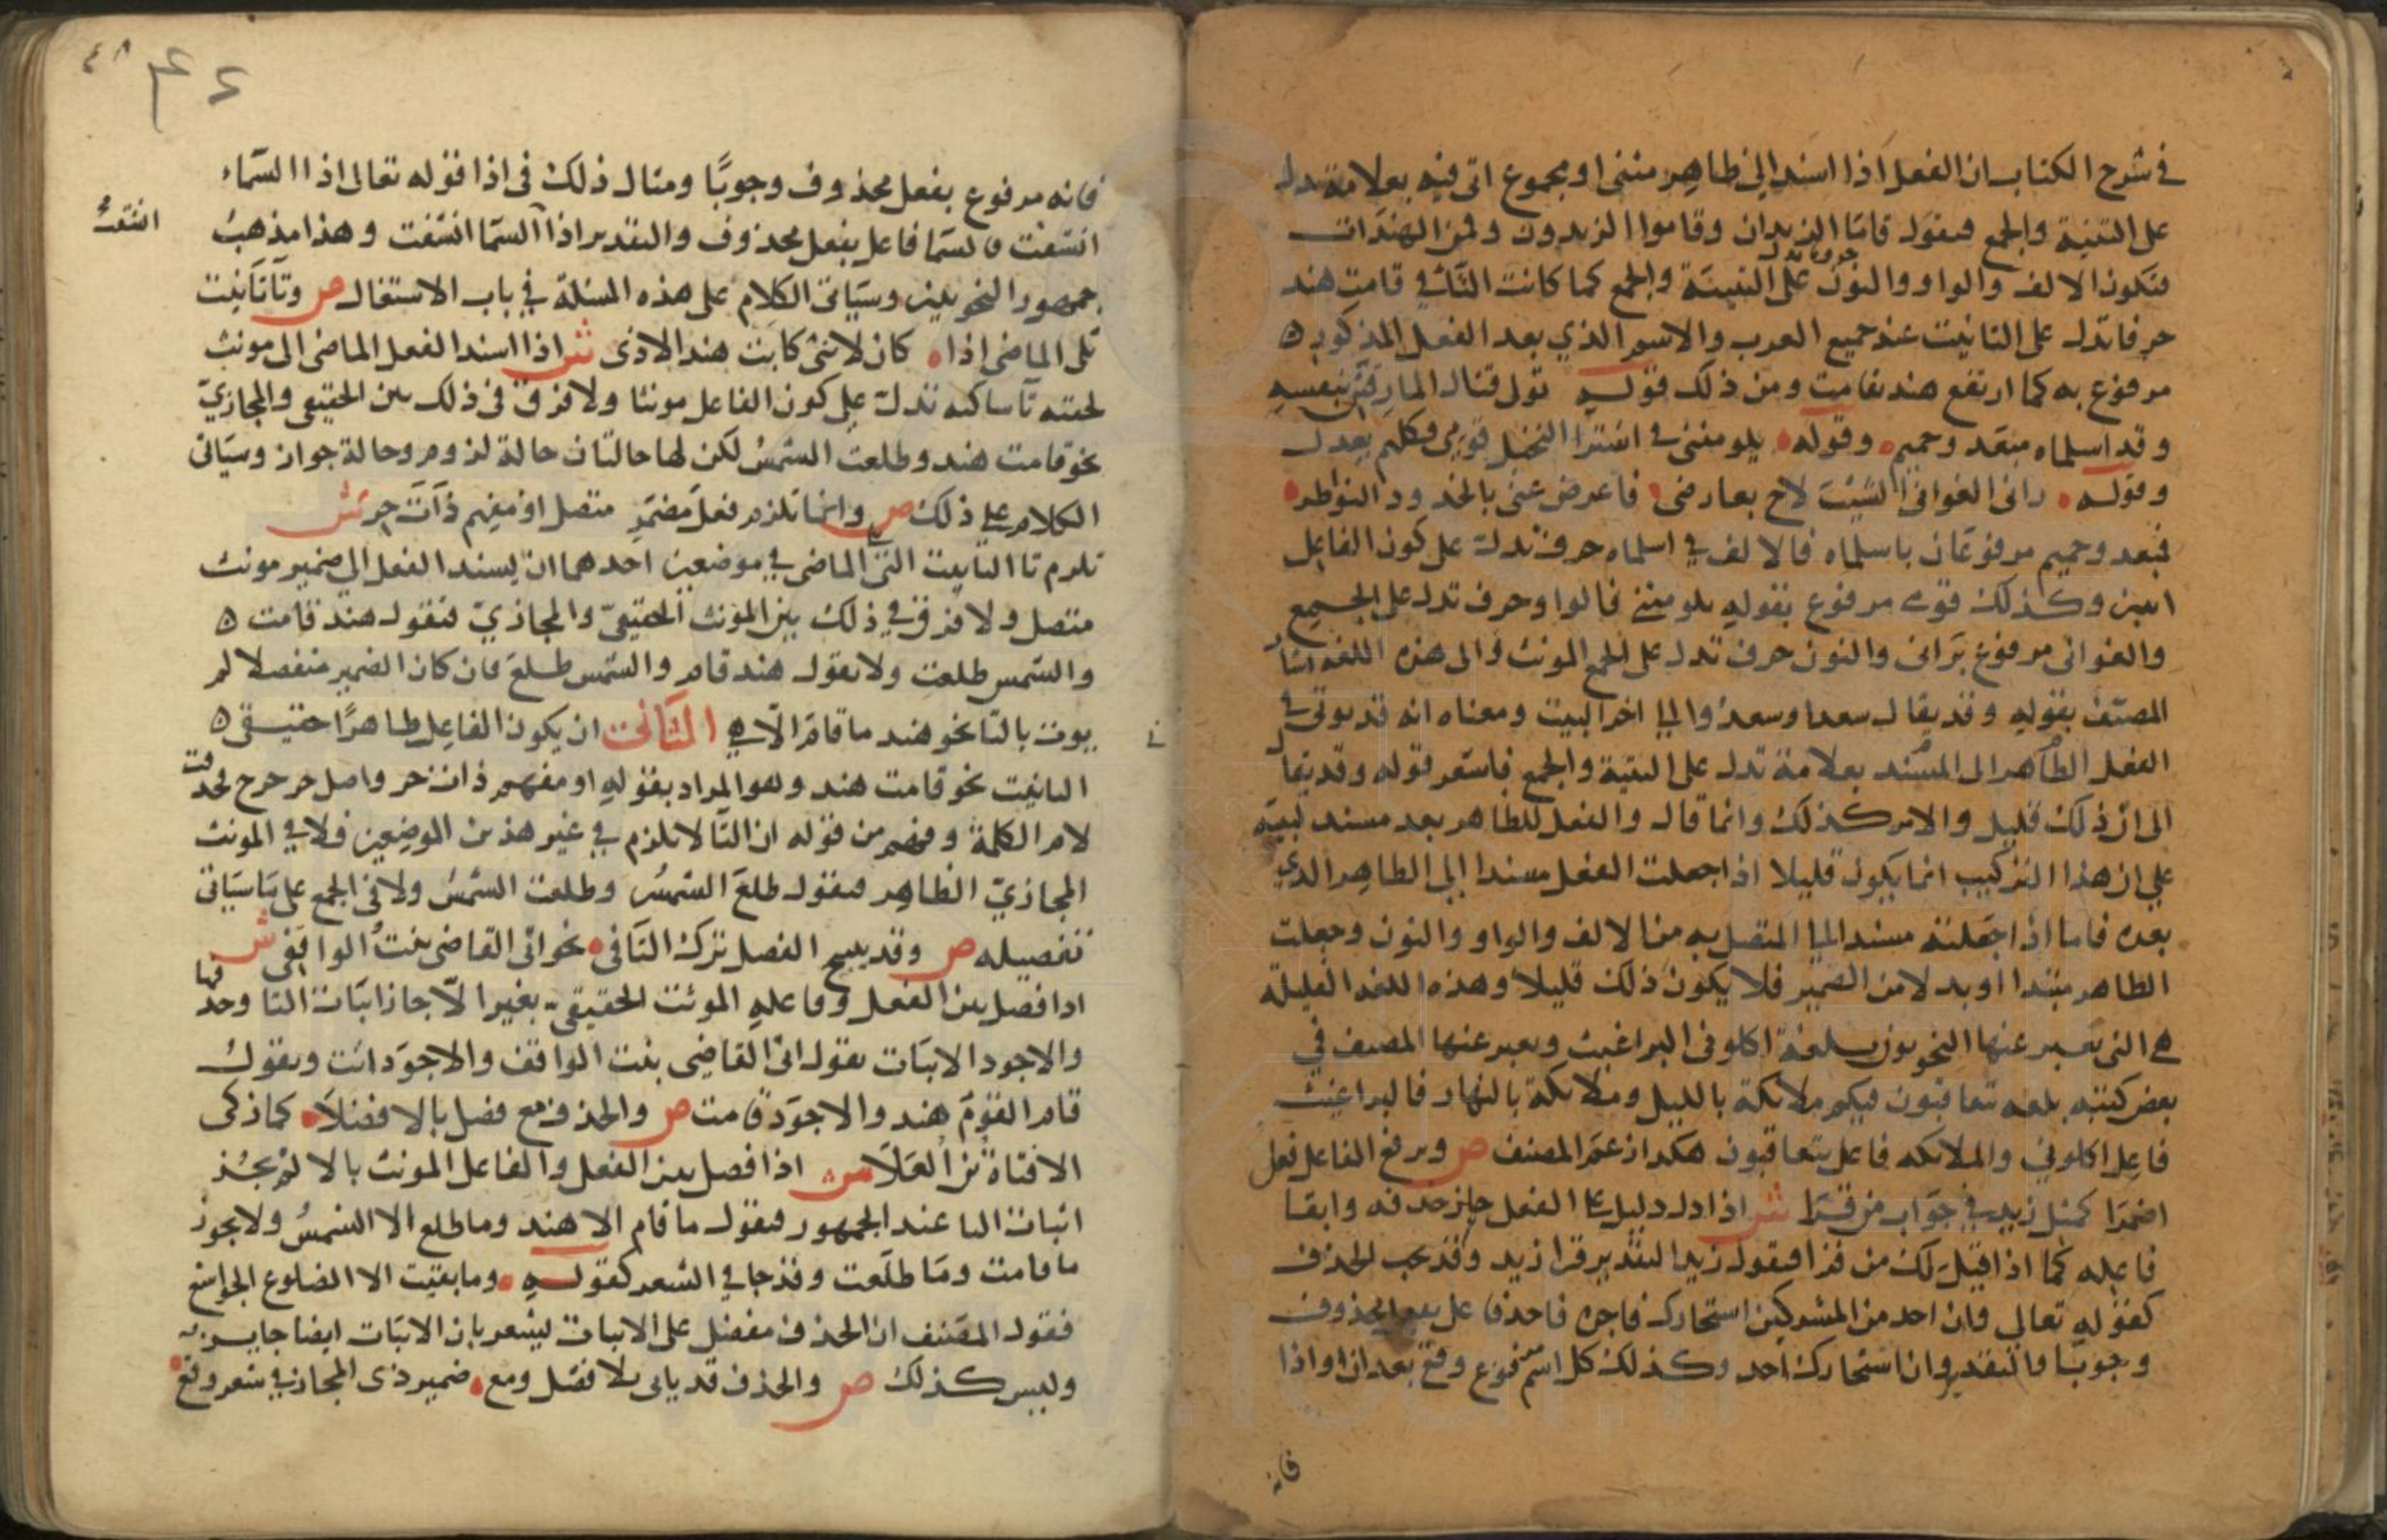 في شرح الكتاب ان الفعل اذا اسند الي ظاهر مثنى او مجموع اتى فيه بعلامة تدل
على التثنية والجمع فيقول قاما الزيدان وقاموا الزيدون وقمن الهندات
فتكون الالف والواو والنون حروفا تدل على التثنية والجمع كما كانت التا في قامت هند
حرفا تدل على التانيث عند جميع العرب والاسم الذي بعد الفعل المذكور ه
مرفوع به كما ارتفع هند بقامت ومن ذلك قوله تولى قتال المارقين بنفسه
وقد اسلماه مبعد وحميم وقوله يلومنني في اشترا النخيل قومي فكلهم يعدل
وقوله راني الغواني الشيب لاح بعارضي فاعرضن عني بالخدود النواظر
فبعد وحميم مرفوعان باسلماه فالالف في اسلماه حرف تدل على كون الفاعل
اثنين وكذلك قومي مرفوع بقوله يلومنني فالواو حرف تدل على الجميع
والغواني مرفوع براني والنون حرف تدل على الجمع المونث والى هذه اللغه اشار
المصنف بقوله وقد يقال سعدا وسعدوا الي اخر البيت ومعناه انه قد يوتى في
الفعل الظاهر الى المسند بعلامة تدل على التثنية والجمع فاشعر قوله وقد يقال
الى ان ذلك قليل والامر كذلك وانما قال والفعل للظاهر بعد مسند لينبه
علي ان هذا التركيب انما يكون قليلا اذا جعلت الفعل مسندا الي الظاهر الدي
بعده فاما اذا جعلته مسندا الي المتصل به من الالف والواو والنون وجعلت
الظاهر مبتدا او بدلا من الضمير فلا يكون ذلك قليلا وهذه اللغه القليلة
هي التي يعبر عنها النحويون بلغة اكلوني البراغيث ويعبر عنها المصنف في
بعض كتبه بلغه يتعاقبون فيكم ملائكة بالليل وملائكة بالنهار فالبراغيث
فاعل اكلوني والملائكه فاعل يتعاقبون هكذا زعم المصنف ص ويرفع الفاعل فعل
اضمرا كمثل زيد في جواب من قرا ش اذا دل دليل على الفعل جاز حذفه وابقا
فاعله كما اذا قيل لك من قرا فيقول زيد التقدير قرا زيد وقد يجب الحذف
كقوله تعالى وان احد من المشركين استجارك فاجره فاحد فاعل بفعل محذوف
وجوبا والتقدير وان استجارك احد وكذلك كل اسم مرفوع وقع بعد ان او اذا
فانه
فانه مرفوع بفعل محذوف وجوبا ومثال ذلك في اذا قوله تعالى اذا السماء
انشقت فالسما فاعل بفعل محذوف والتقدير اذا السما انشقت وهذا مذهب
جمهور النحويين وسياتي الكلام على هذه المسئلة في باب الاشتغال ص وتا تانيث
تلى الماضى اذا كان لانثى كابت هند الاذى ش اذا اسند الفعل الماضى الى مونث
لحقته تا ساكنه تدل على كون الفاعل مونثا ولا فرق في ذلك بين الحقيقي والمجازي
نحو قامت هند وطلعت الشمس لكن لها حالتان حالة لزوم وحالة جواز وسياتى
الكلام علي ذلك ص وانما تلزم فعل مضمر متصل او مفهم ذات حر ش
تلزم تا التانيث التى الماضى في موضعين احدهما ان يسند الفعل الي ضمير مونث
متصل ولا فرق في ذلك بين المونث الحقيقي والمجازي فتقول هند قامت ه
والشمس طلعت ولا تقول هند قام والشمس طلع فان كان الضمير منفصلا لم
يوت بالتا نحو هند ما قام الا هي الثاني ان يكون الفاعل ظاهرا حقيقى ه
التانيث نحو قامت هند وهو المراد بقوله او مفهم ذات حر واصل حر حرح فحذفت
لام الكلمة وفهم من قوله ان التا لا تلزم في غير هذين الموضعين فلا في المونث
المجازي الظاهر فيقول طلع الشمس وطلعت الشمس ولا في الجمع على ما سياتي
تفصيله ص وقد يبيح الفصل ترك التا في نحو اتى القاضى بنت الواقفي ش
اذا فصل بين الفعل وفاعله المونث الحقيقي بغير الا جاز اثبات التا وحذفها
والاجود الاثبات تقول اتى القاضي بنت الواقف والاجود اتت وتقول
قام القوم هند والاجود قامت ص والحذف مع فصل بالا فضلا كما زكى
الا فتاة بن العلا ش اذا فصل بين الفعل والفاعل المونث بالا لم يجز
اثبات التا عند الجمهور فيقول ما قام الا هند وما طلع الا الشمس ولا يجوز
ما قامت وما طلعت وقد جا في الشعر كقوله وما بقيت الا الضلوع الجراشع
فقول المصنف ان الحذف مفضل على الاثبات يشعر بان الاثبات ايضا جايز
وليس كذلك ص والحذف قد ياتى بلا فصل ومع ضمير ذى المجاز في شعر وقع